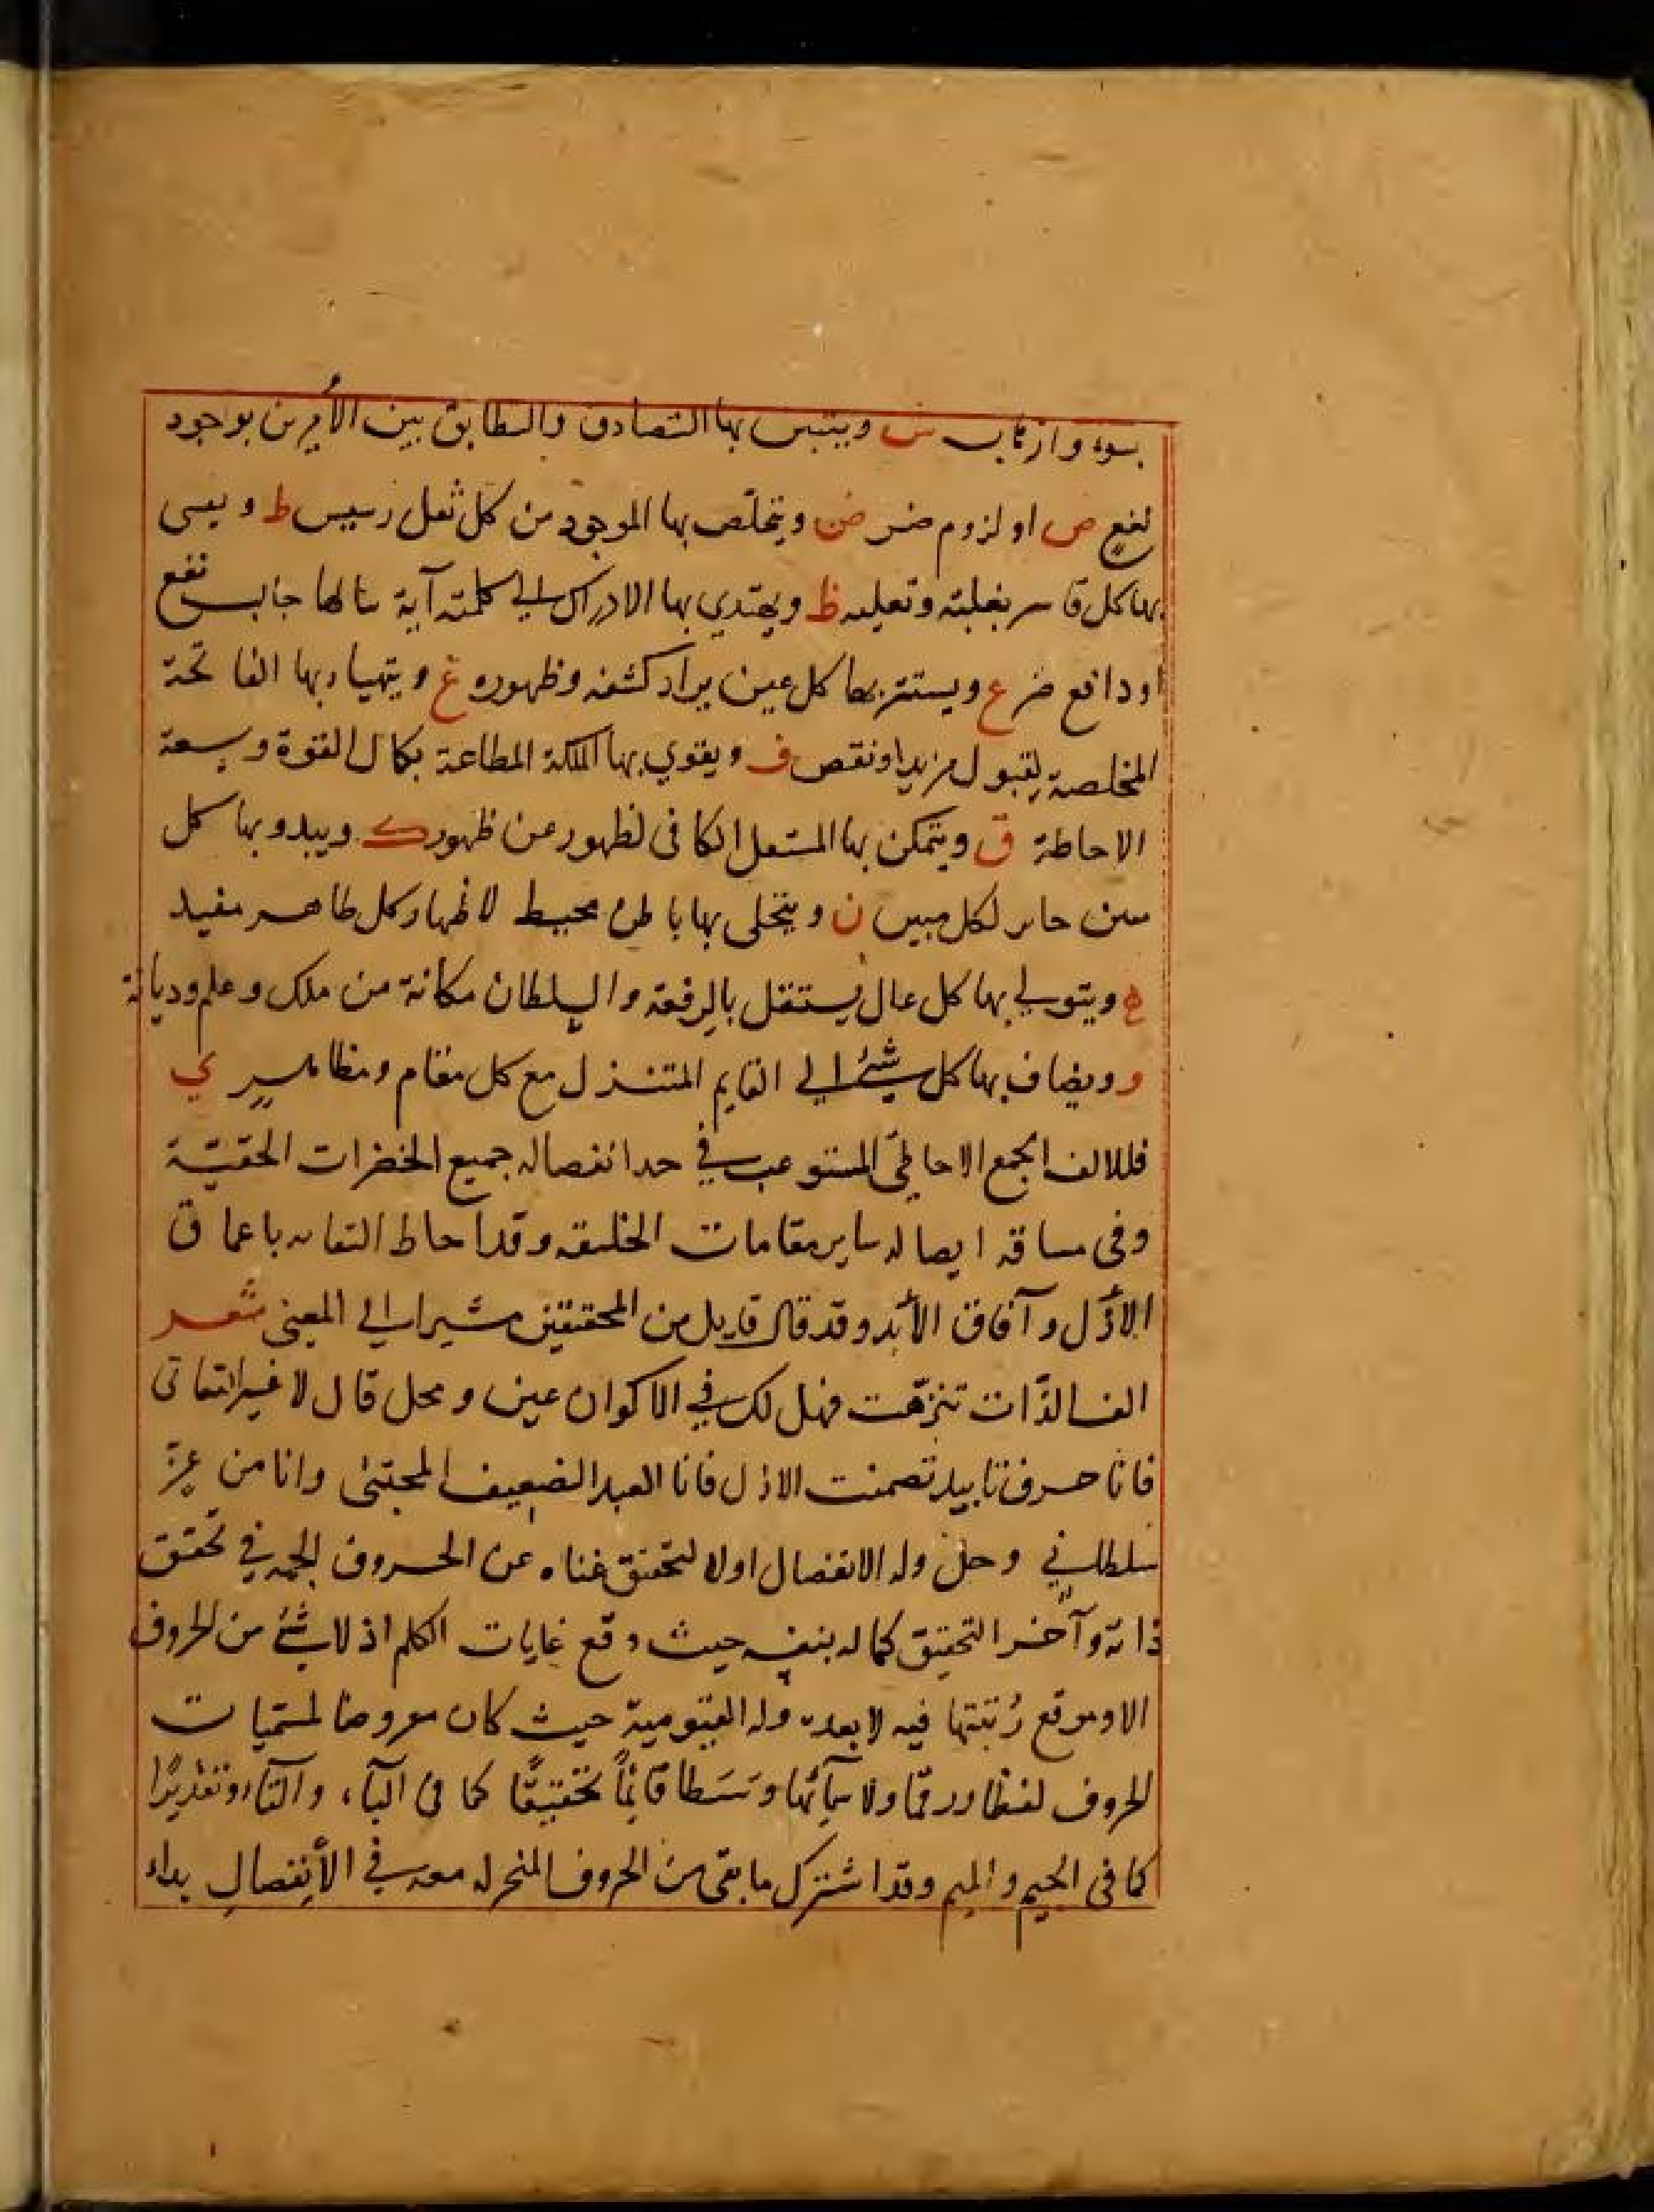 بسوء وارتاب ش ويتبس بها التصادق والتطابق بين الأمرين بوجود
لنفع ص او لزوم ضر ض ويتخلص بها الموجود من كل ثفل رسيس ط ويسى
بها كل قاسر بغلبته وتعليه ظ ويهتدي بها الادراك الى كلمته آية شالها جالب نفع
او دافع ضر ع ويستتر بها كل عين يراد كشفه وظهوره غ ويتهياء بها الفاتحة
المخلصة لقبول مزيد او نقص ف ويقوي بها الملكة المطاعة بكمال القوة وسعة
الاحاطة ق ويتمكن بها المستعل الكافى لظهور عن ظهور ك ويبدو بها كل
لكل مبين ن ويتجلى بها باطن محيط لاظهار كل ظاهر مفيد
ه ويتولى بها كل عال يستقل بالرفعة والسلطان مكانة من ملك وعلم وديانة
و ويضاف بها كل شئ الى القايم المتنزل مع كل مقام ومظاهر ي
فللالف الجمع الاحاطي المستوعب في حد انفصاله جميع الحضرات الحقية
وفى مساقه ايصاله ساير مقامات الخلقيه وقد احاط التفاته باعماق
الأزل وآفاق الأبد وقد قال قايل من المحققين مشيرا الى المعنى شعر
الف الذات تنزهت فهل لك في الاكوان عين ومحل قال لا غير التفاتى
فانا حرف تابيد تضمنت الازل فانا العبد الضعيف المجتنى وانا من عز
سلطاني وجل وله الانفصال اولا لتحقق غناه عن الحروف الجمه في تحقق
ذاته وآخرا لتحقيق كماله بنفسه حيث وقع غايات الكلم اذ لا شئ من الحروف
الا وموقع رتبتها فيه لا بعده وله القيومية حيث كان معروضا لمسميات
الحروف لفظا ورقما ولاسمائها وسطا قائما تحقيقًا كما فى الباء، والتاء وتقديرًا
كما فى الجيم والميم وقد اشترك ما بقى من الحروف المنحرله معه في الأنفصال بداء